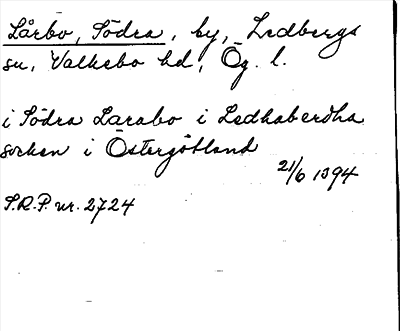 Lårbo, Södra, by, Ledbergs
sn, Valkebo hd, Ög. l.
i Södra Larabo i Ledhaberdha
socken i Östergötland
21/6 1394
S.R.P. nr. 2724